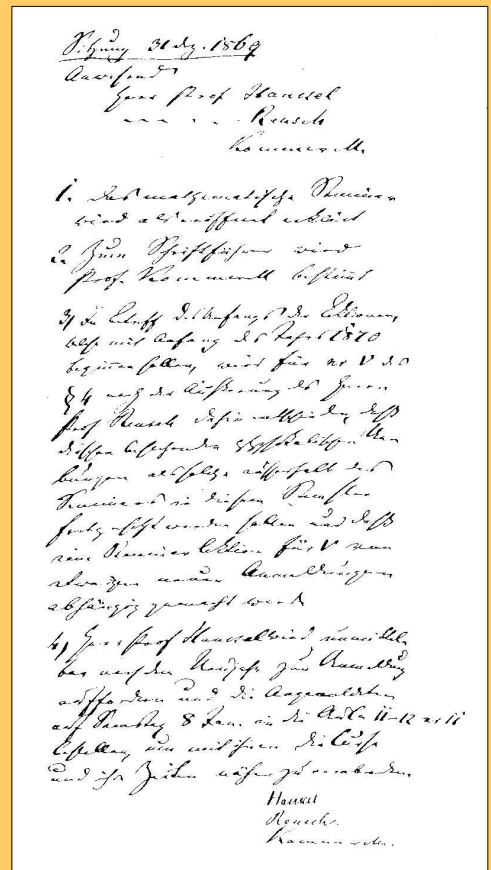 Sitzung 31 Dez. 1869
Anwesend
Herr Prof Hankel
Reusch
Kommerell.
1. das mathematische Seminar
wird als eröffnet erklärt
2. Zum Schriftführer wird
Prof. Kommerell bestimmt
3) In Betreff des Anfangs der Lektionen,
welche mit Anfang des Jahres 1870
beginnen sollen, wird für nr V des
§ 4 nach der Äußerung des Herrn
Prof Reusch dahin entschieden, daß
die bestehenden physikalischen Ue-
bungen als solche außerhalb des
Seminars in diesem Semester
fortgesetzt werden sollen und daß
eine Seminarlektion für V von
etwaigen neuen Anmeldungen
abhängig gemacht wird.
4) Herr Prof Hankel wird unmittel-
bar nach dem Neujahr zur Anmeldung
auffordern und die Angemeldeten
auf Samstag 8 Jan. in die Aula 11-12 nr 11
bestellen, um mit ihnen die Curse
und ihre Zeiten näher zu verabreden.
Hankel
Reusch.
Kommerell.